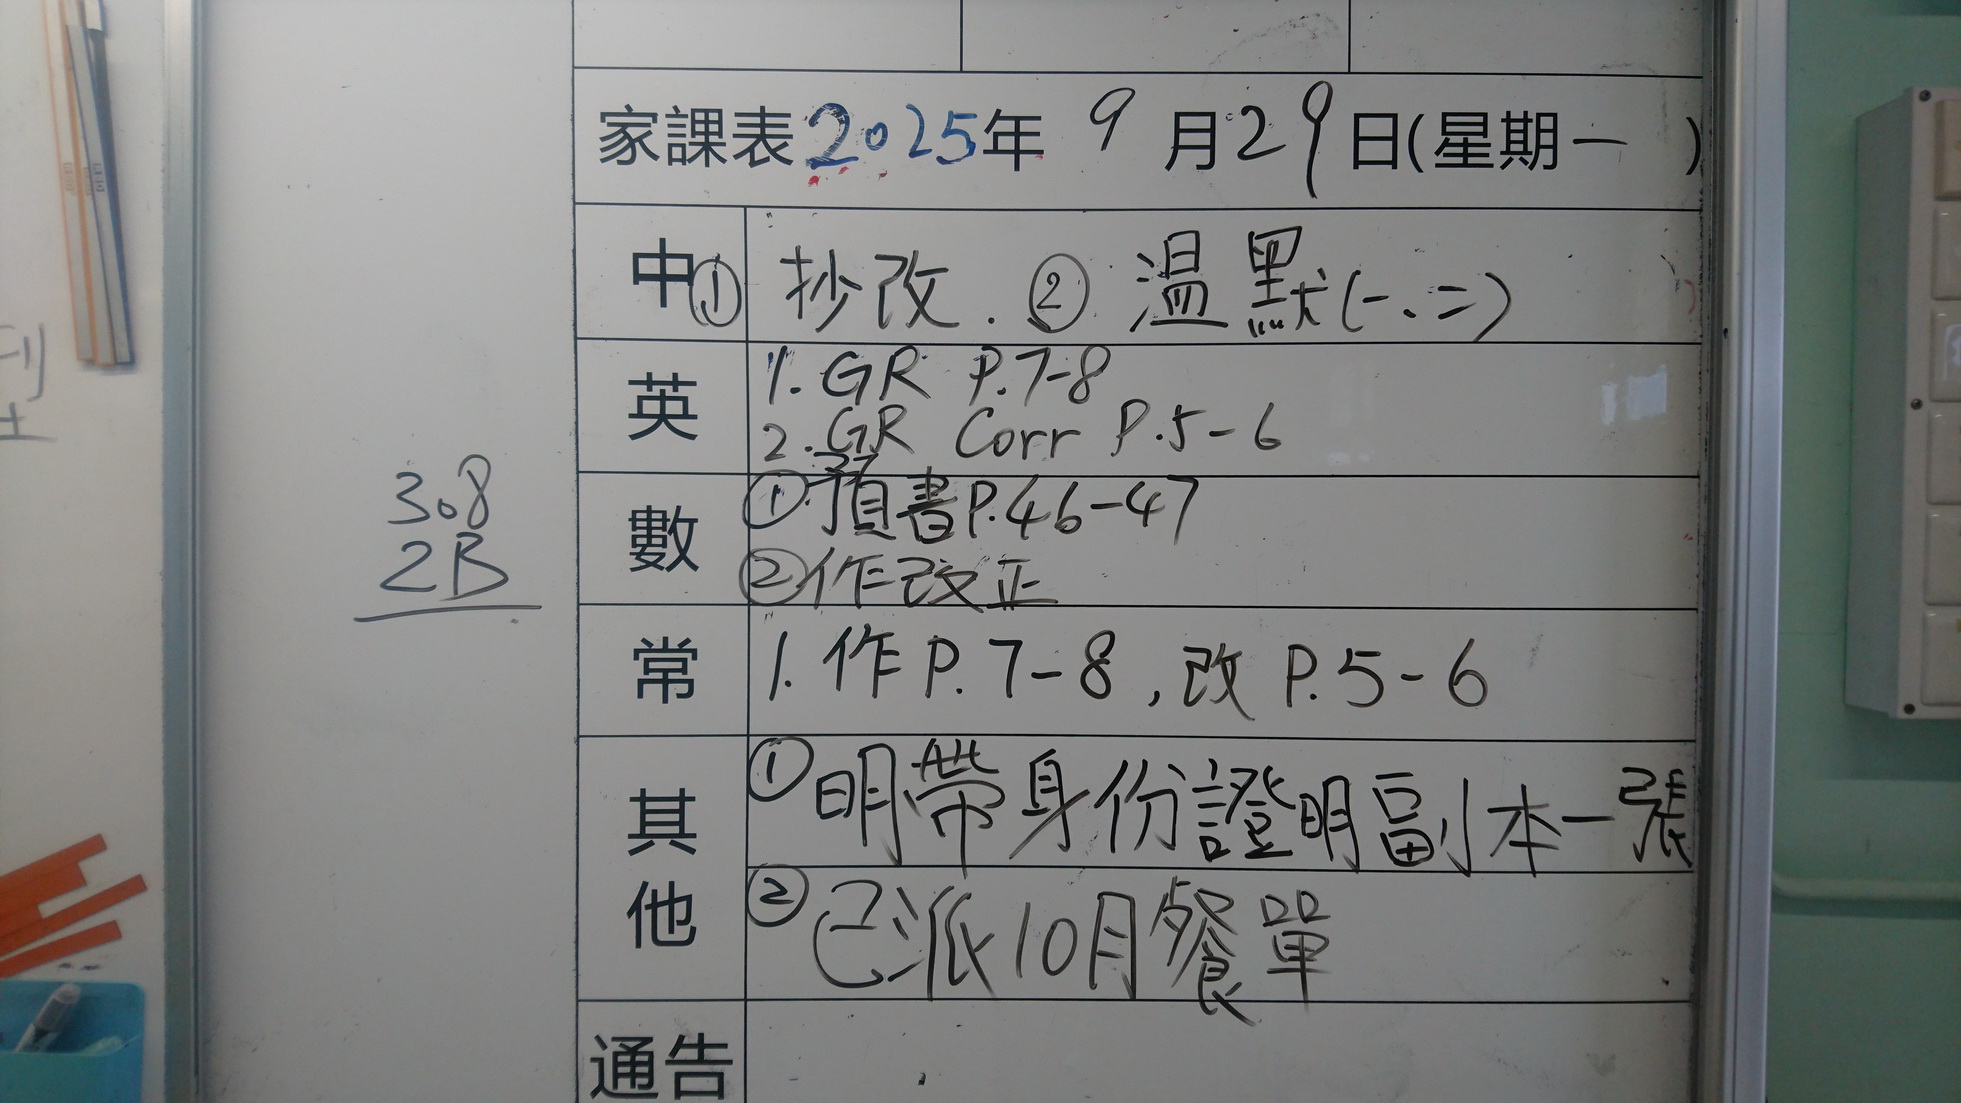 家課表2025年 9月29日(星期一 )
中 ① 抄改. ② 溫默(一、二)
英 1. GR P.7-8
2. GR Corr P.5-6
數 ① 預書P.46-47
② 作改正
308
2B
常 1. 作P.7-8, 改P.5-6
其他 ① 明帶身份證明副本一張
② 已派10月餐單
通告